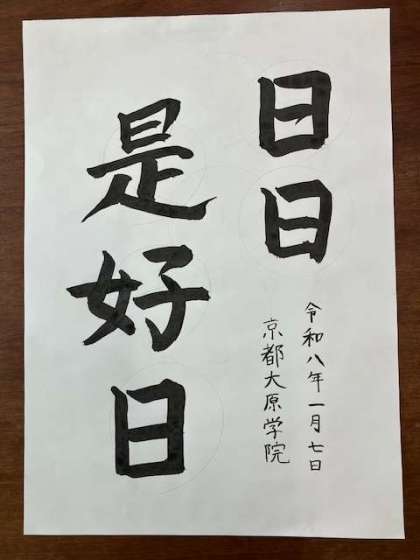 日日
是好日
令和八年一月七日
京都大原学院